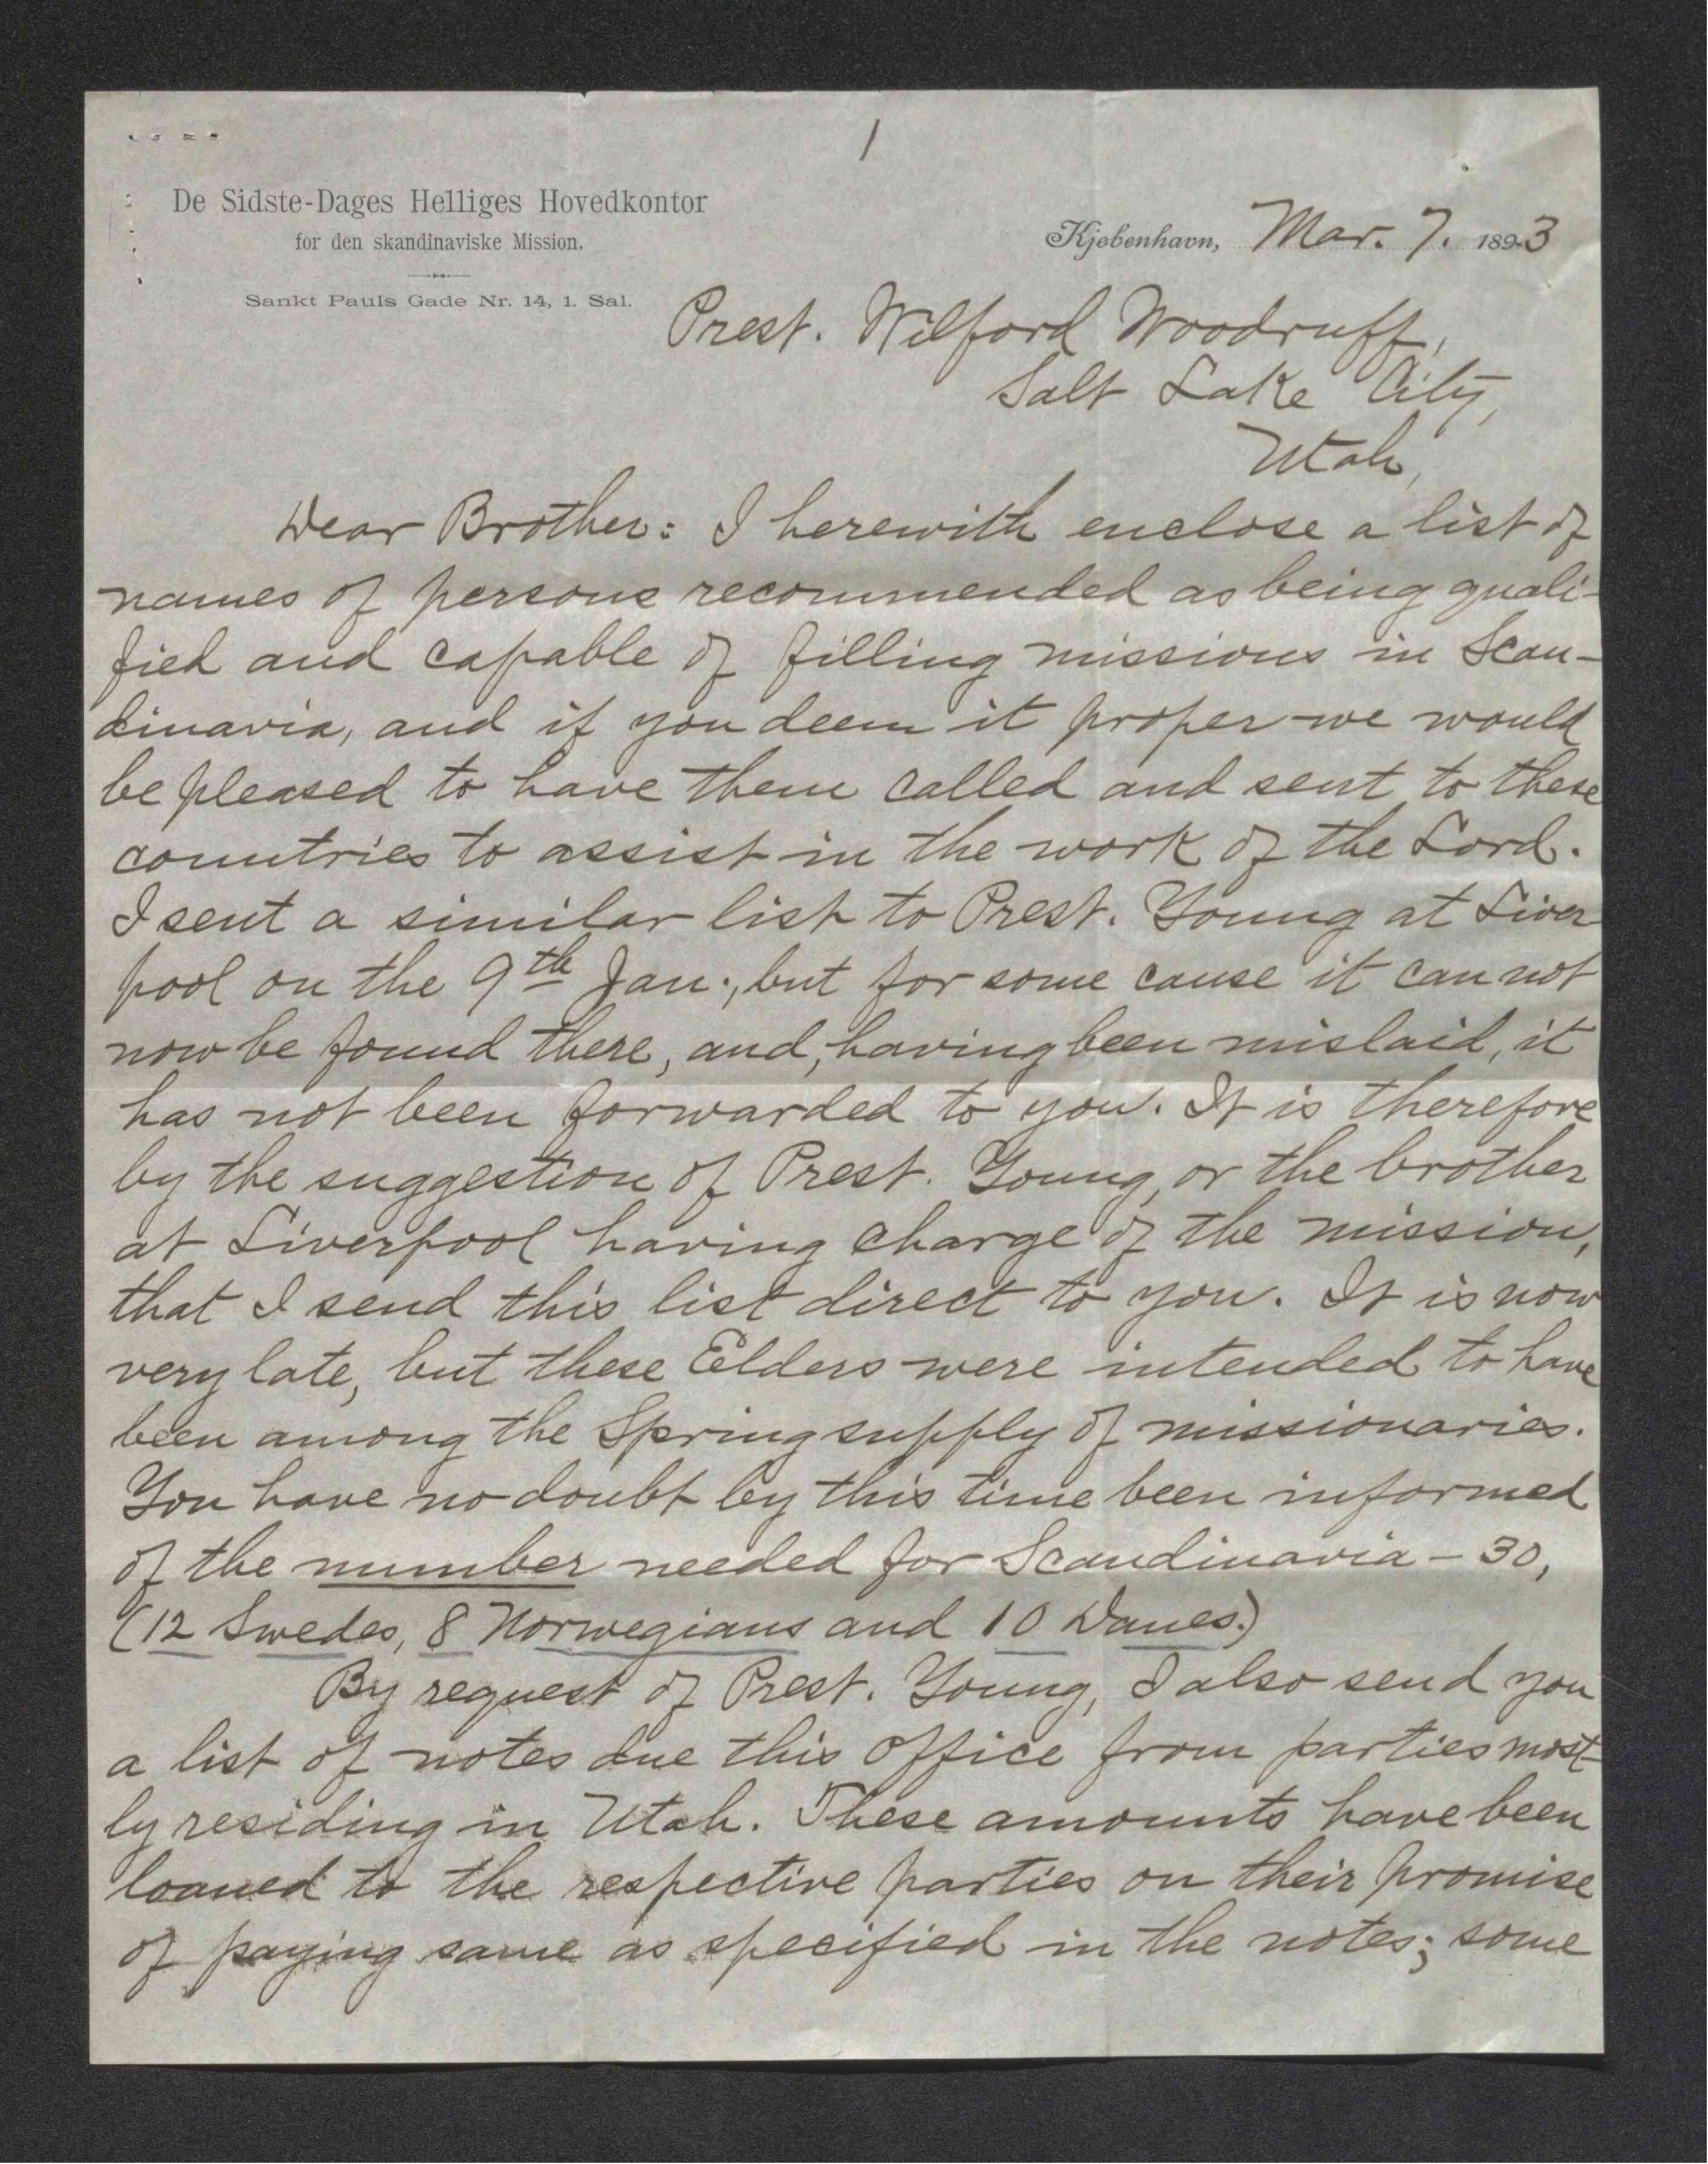 1
De Sidste-Dages Helliges Hovedkontor
for den skandinaviske Mission.
Sankt Pauls Gade Nr. 14, 1. Sal.
Kjøbenhavn, Mar. 7. 1893
Prest. Wilford Woodruff,
Salt Lake City,
Utah,
Dear Brother: I herewith enclose a list of
names of persons recommended as being quali-
fied and capable of filling missions in Scan-
dinavia, and if you deem it proper we would
be pleased to have them called and sent to these
countries to assist in the work of the Lord.
I sent a similar list to Prest. Young at Liver
pool on the 9th Jan., but for some cause it can not
now be found there, and, having been mislaid, it
has not been forwarded to you. It is therefore
by the suggestion of Prest. Young, or the brother
at Liverpool having charge of the mission,
that I send this list direct to you. It is now
very late, but these Elders were intended to have
been among the Spring supply of missionaries.
You have no doubt by this time been informed
of the number needed for Scandinavia – 30,
(12 Swedes, 8 Norwegians and 10 Danes.)
By request of Prest. Young, I also send you
a list of notes due this office from parties most-
ly residing in Utah. These amounts have been
loaned to the respective parties on their promise
of paying same as specified in the notes; some